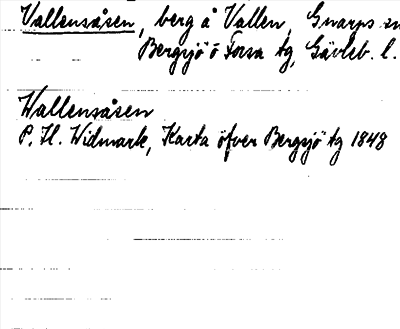 Vallensåsen, berg å Vallen, Gnarps sn
Bergsjö o Forsa tg, Gävleb. l.
Wallensåsen
P. H. Widmark, Karta öfver Bergsjö tg 1848